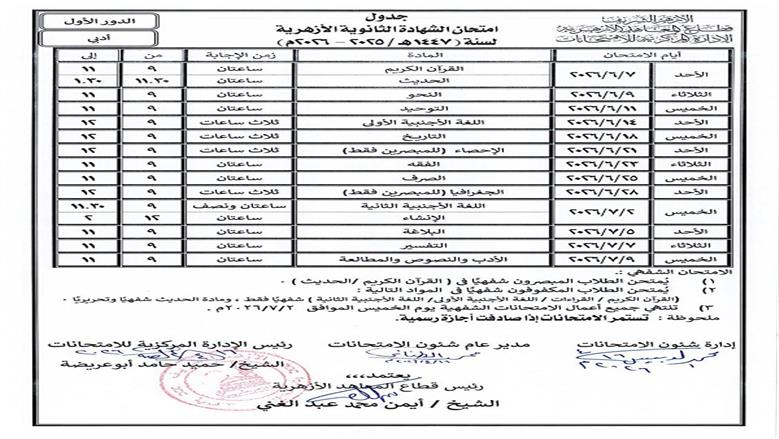 الأزهر الشريف
قطاع المعاهد الأزهرية
الإدارة المركزية للامتحانات
جدول
امتحان الشهادة الثانوية الأزهرية
لسنة (١٤٤٧هـ / ٢٠٢٥ - ٢٠٢٦م)
الدور الأول
أدبي
أيام الامتحان المادة زمن الإجابة من إلى
الأحد ٢٠٢٦/٦/٧ القرآن الكريم ساعتان ٩ ١١
الحديث ساعتان ١١.٣٠ ١.٣٠
الثلاثاء ٢٠٢٦/٦/٩ النحو ساعتان ٩ ١١
الخميس ٢٠٢٦/٦/١١ التوحيد ساعتان ٩ ١١
الأحد ٢٠٢٦/٦/١٤ اللغة الأجنبية الأولى ثلاث ساعات ٩ ١٢
الخميس ٢٠٢٦/٦/١٨ التاريخ ثلاث ساعات ٩ ١٢
الأحد ٢٠٢٦/٦/٢١ الإحصاء (للمبصرين فقط) ثلاث ساعات ٩ ١٢
الثلاثاء ٢٠٢٦/٦/٢٣ الفقه ساعتان ٩ ١١
الخميس ٢٠٢٦/٦/٢٥ الصرف ساعتان ٩ ١١
الأحد ٢٠٢٦/٦/٢٨ الجغرافيا (للمبصرين فقط) ثلاث ساعات ٩ ١٢
الخميس ٢٠٢٦/٧/٢ اللغة الأجنبية الثانية ساعتان ونصف ٩ ١١.٣٠
الإنشاء ساعتان ١٢ ٢
الأحد ٢٠٢٦/٧/٥ البلاغة ساعتان ٩ ١١
الثلاثاء ٢٠٢٦/٧/٧ التفسير ساعتان ٩ ١١
الخميس ٢٠٢٦/٧/٩ الأدب والنصوص والمطالعة ساعتان ٩ ١١
الامتحان الشفهي :.
١) يُمتحن الطلاب المبصرون شفهيًا في ( القرآن الكريم /الحديث ) .
٢) يُمتحن الطلاب المكفوفون شفهيًا في المواد التالية :
(القرآن الكريم / القراءات / اللغة الأجنبية الأولى/ اللغة الأجنبية الثانية ) شفهيًا فقط ، ومادة الحديث شفهيًا وتحريريًا .
٣) تنتهي جميع أعمال الامتحانات الشفهية يوم الخميس الموافق ٢٠٢٦/٧/٢م .
ملحوظة : تستمر الامتحانات إذا صادفت أجازة رسمية.
إدارة شئون الامتحانات مدير عام شئون الامتحانات رئيس الإدارة المركزية للامتحانات
الشيخ/ حميد حامد أبوعريضة
يعتمد،،،
رئيس قطاع المعاهد الأزهرية
الشيخ / أيمن محمد عبد الغني